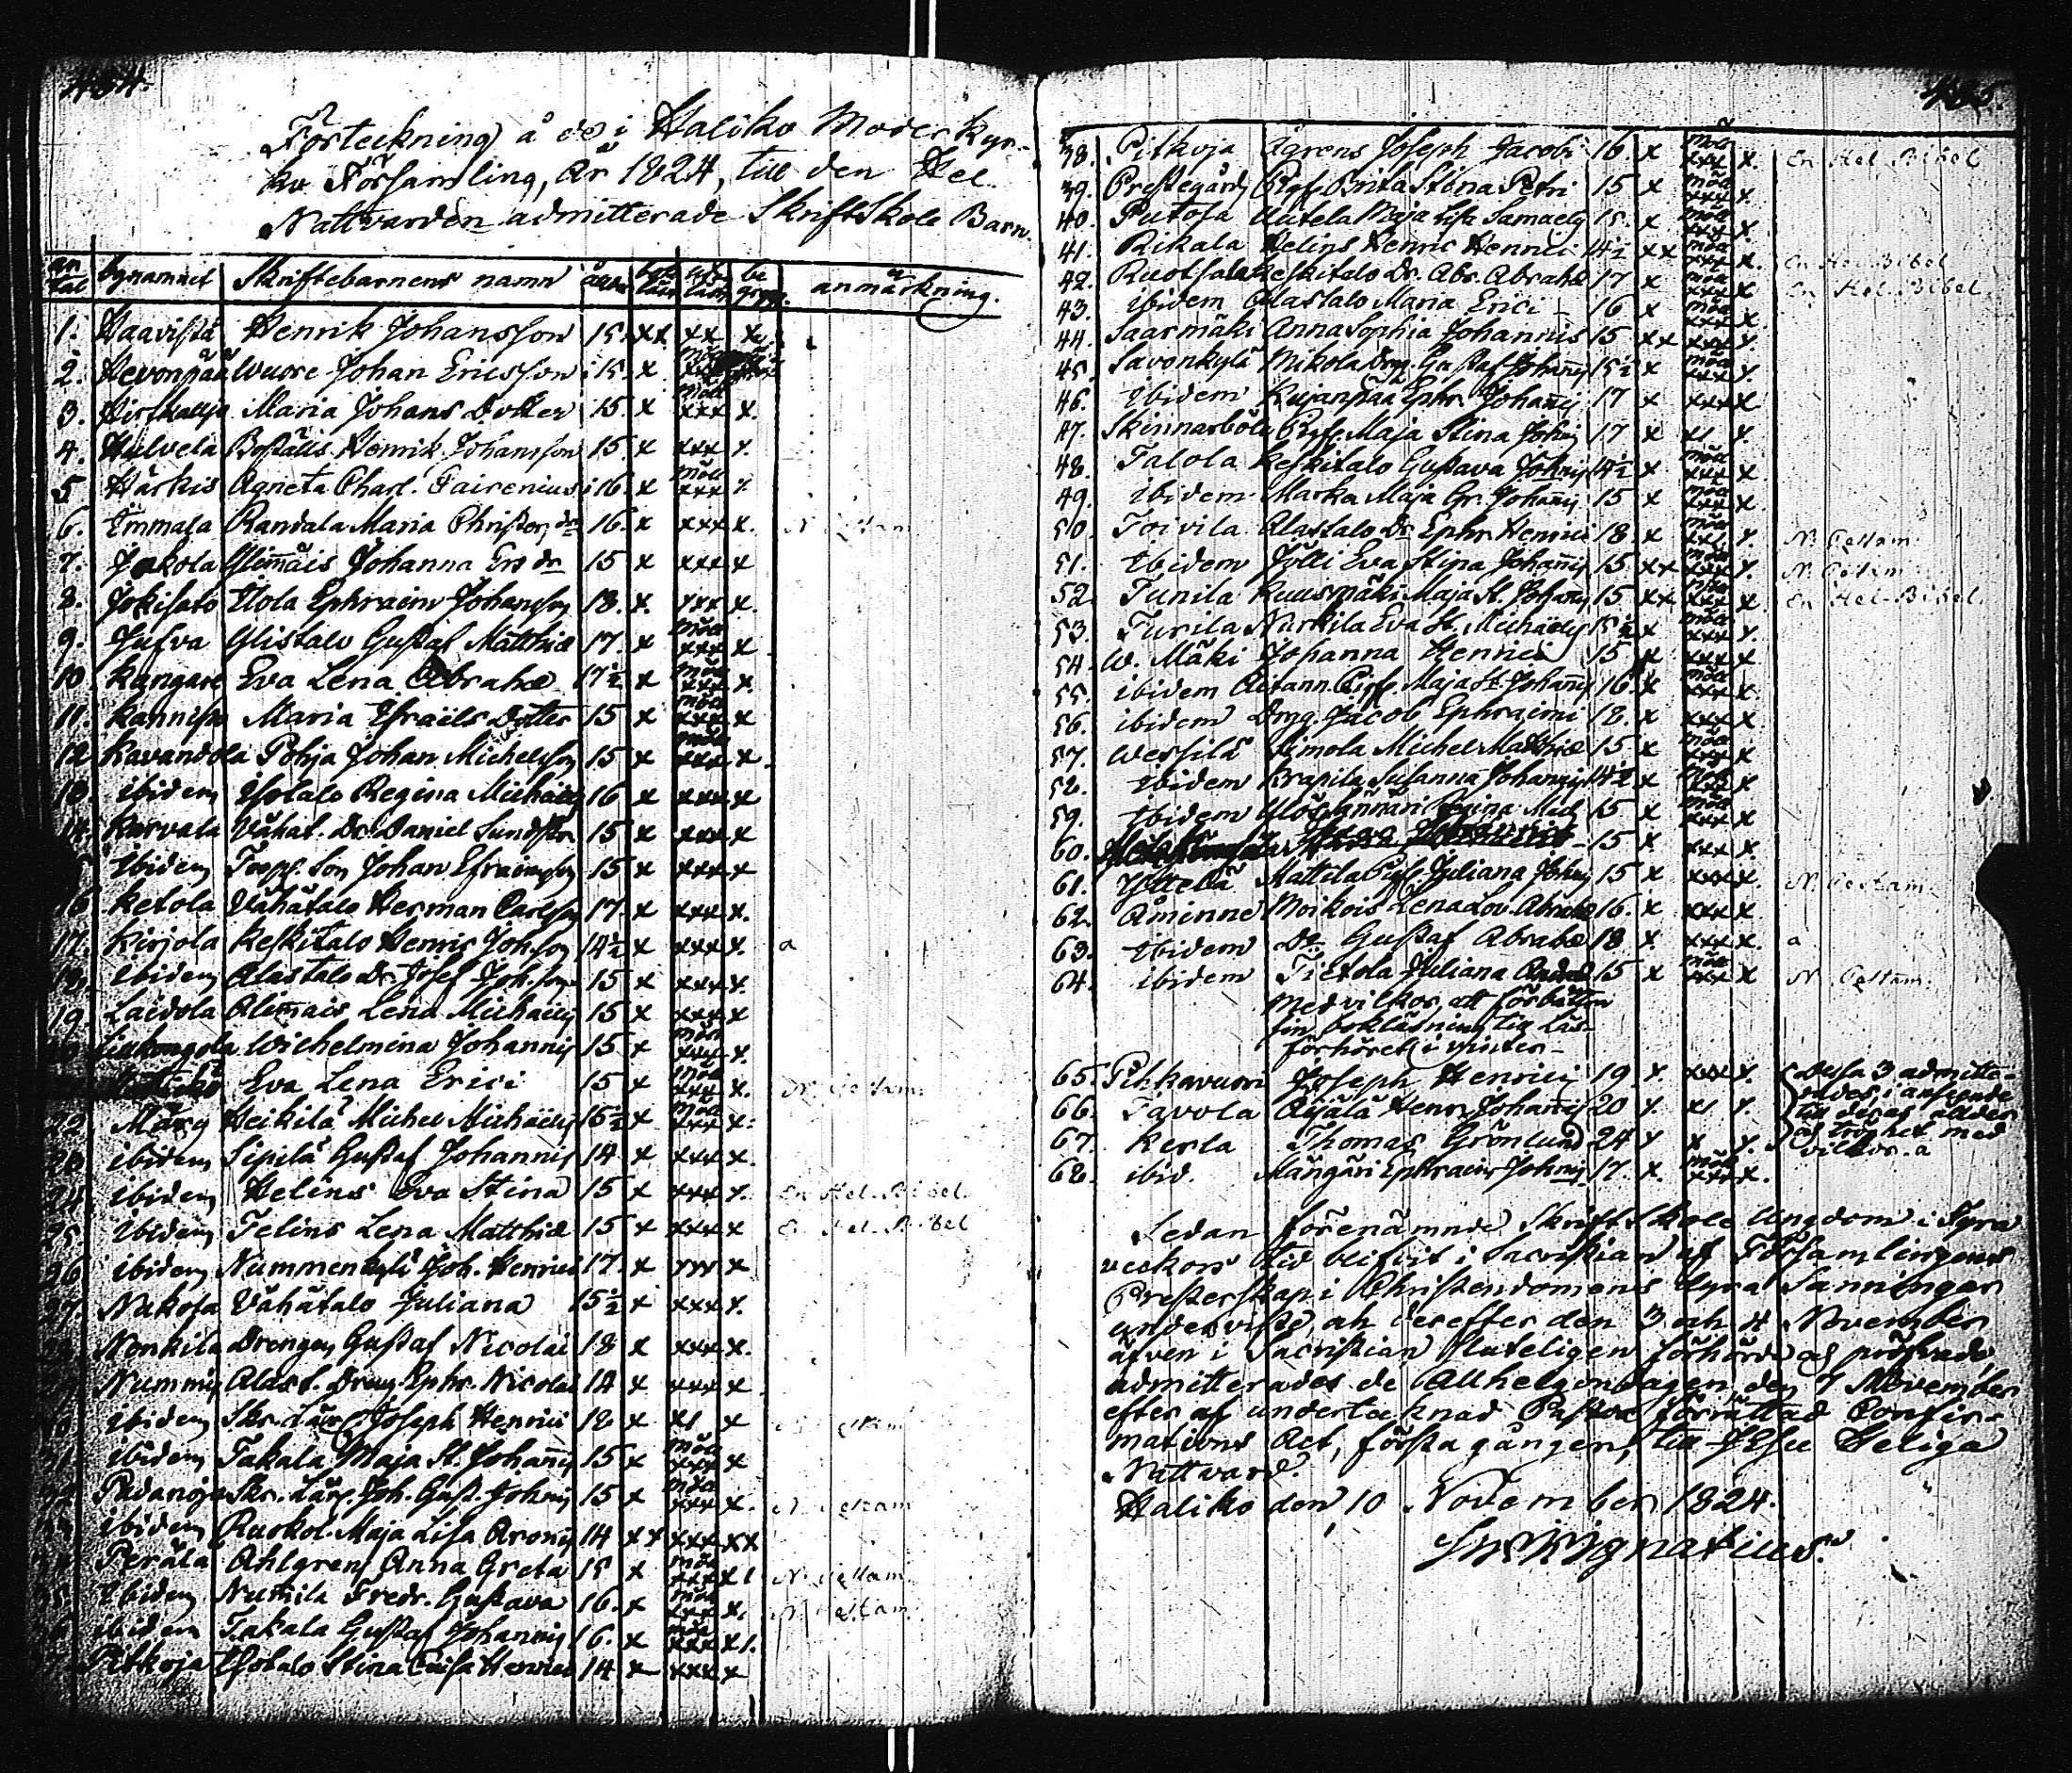 484.
Förteckning å de i Haliko Moder Kyr-
ko Församling, År 1824, till den Hel.
Nattvarden admitterade Skriftskole Barn.
an tal Bynamnet Skriftebarnens namn ålder bok läsn be grep. anmärkning.
1. Haavista Henrik Johansson 15. xx xx x.
2. Hevonpää Wuore Johan Ericsson 15. x
3. Maria Johans Dotter 15. x möd xxx x.
4. Hulvela Boställs Henrik Johansson 15. x xxx x.
5 Härkis Agneta Charl. Fairenius 16. x möd xxx x.
6. Immala Randala Maria Christers dr 16. x xxx x.
7. Jokola Ylimäis Johanna Ers dr 15 x xxx x
8. Jokisato Uola Ephraim Johansson 18. x. xxx x.
9. Jufva Ylistalo Gustaf Matthiæ 17. x möd xxx x
10 Kangare Eva Lena Abrahæ 17½ x möd xxx x.
11. Kannisto Maria Israëls Dotter 15 x möd xxx x
12 Kavandola Pohja Johan Michelsson 15 x möd xxx x.
13. ibidem Isotalo Regina Michaëlis 16 x xxx x
14. Karvala Vähät. Dr. Daniel Sundstr. 15 x xxx x
ibidem Torp. Son Johan Efraimsson 15 x xxx x
16 Ketola Vähätalo Herman Carlsson 17. x xxx x.
17. Kirjola Keskitalo Henric Johsson 14½ x xxx x. a
18. ibidem Alastalo Dr. Josef Joh. son 15 x xxx x.
19. Laidola Alimais Lena Michaëlis 15 x xxx x
Wilhelmina Johannis 15 x möd xxx x.
Eva Lena Erici 15 x möd xxx x.
22. Märy Heikilä Michel Michaëlis 15½ x möd xxx x.
23. ibidem Sipilä Gustaf Johannis 14 x xxx x.
24. ibidem Helins Eva Stina 15 x xxx x. En Hel. Bibel.
25 ibidem Telins Lena Matthiæ 15 x xxx x En Hel. Bibel
26 ibidem Nummenkylä Joh. Henrici 17. x xxx x
27. Nakola Vähätalo Juliana 15½ x xxx x.
Nonkila Drengen Gustaf Nicolai 18 x xxx x.
Nummis Alast. Dreng Ephr. Nicolai 14 x xxx x
ibidem Skr. Lärl. Joseph Henrici 18 x x1 x
ibidem Takala Maja St. Johannis 15 x möd xxx x
Padanoja Skr. Lärl. Joh. Gust. Johnis 15 x möd xxx x. N. Testam
ibidem Ruskol. Maja Lisa Aronis 14 xx xxx xx
Perälä Ahlgrens Anna Greta 15 x möd xxx x1 N. Testam
ibidem Numila Fredr. Gustava 16. x möd xxx x. N. Testam.
ibidem Takala Gustaf Johannis 16. x möd xxx x1.
Pitkoja Isotalo Stina Caisa Henrici 14 x xxx x
485.
38. Pitkoja Ågrens Joseph Jacobi 16. x möd xxx x. En Hel. Bibel
39. Prestegård Pig. Brita Stina Petri 15 x möd xxx x
40. Putosa Uutela Maja Lisa Samuelis 15. x möd xxx x.
41. Rikala Helins Henric Henrici 14½ xx möd xxx x. En Hel. Bibel
42. Ruotsala Keskitalo Dr. Abr. Abrahæ 17 x möd xxx x En Hel. Bibel
43. ibidem Alastalo Maria Erici 16 x möd xxx x.
44. Saarmäki Anna Sophia Johannis 15 xx xxx x.
45. Savonkylä Mikola Dreng. Gustaf Johannis 15½ x möd xxx x.
46. ibidem Kujanpää Ephr. Johannis 17 x xxx x
47. Skinnarböle Pig. Maja Stina Johnis 17 x x1 x.
48. Talola Keskitalo Gustava Johnis 14½ x möd xxx x
49. ibidem Marka Maja Gr. Johannis 15 x möd xxx x
50 Toivila Alastalo Dr. Ephr. Henrici 18. x möd xx1 x. N. Testam.
51. ibidem Jölli Eva Stina Johannis 15 xx möd xxx x. N. Testam
52. Tunila Kuusmäki Maja St. Johannis 15 xx möd xxx x En Hel. Bibel.
53. Turila Nurkila Eva St. Michaëlis 15½ x möd xxx x.
54. W. Mäki Johanna Henrici 15 x xxx x
55. ibidem Pig. Maja St. Johannis 16. x möd xxx x.
56. ibidem Dreng. Jacob Ephraimi 18. x xxx x
57. Wessilä Simola Michel Matthiæ 15. x möd xxx x
58. ibidem Krapila Susanna Johannis 14½ x möd xxx x
59. ibidem 15 x möd xxx x
60. 15 x xxx x.
61. Yttelä Mattila Pig. Juliana Johnis 15 x xxx x. N. Testam.
62. Åminne Moikois Lena Lov. Abrahæ 16. x xxx x
63. ibidem Dr. Gustaf Abrahæ 18 x xxx x. a
64. ibidem Tietola Juliana 15 x möd xxx x N. Testam.
med vilkor att förbättra
sin bokläsning till Läs-
förhöret i vinter-
65. Pitkavuori Joseph Henrici 19. x. xxx x. Dessa 3 admitte-
66. Tavola Äijälä Henr. Johannis 20 x. x1 x. rades i anseende till deras ålder
67. Kerla Thomas Grönlund 24 x x x. och tröghet med vilkor. a
68. ibid. Mängäri Ephraim Johnis 17. x. möd xxx x.
Sedan förenämnde Skriftskole Ungdom i Fyra
veckors tid blifvit i Sacristian af Församlingens
Presterskap i Christendomens dyra Sanningar
underviste, och derefter den 3 och 4 November
äfven i Sacristian sluteligen förhörde och pröfvade
admitterades de Allhelgondagen, den 7 November
efter af undertecknad Pastor förrättad Confir-
mations Act, första gången, till Jesu Heliga
Nattvard.
Haliko den 10 November 1824.
Ignatius.